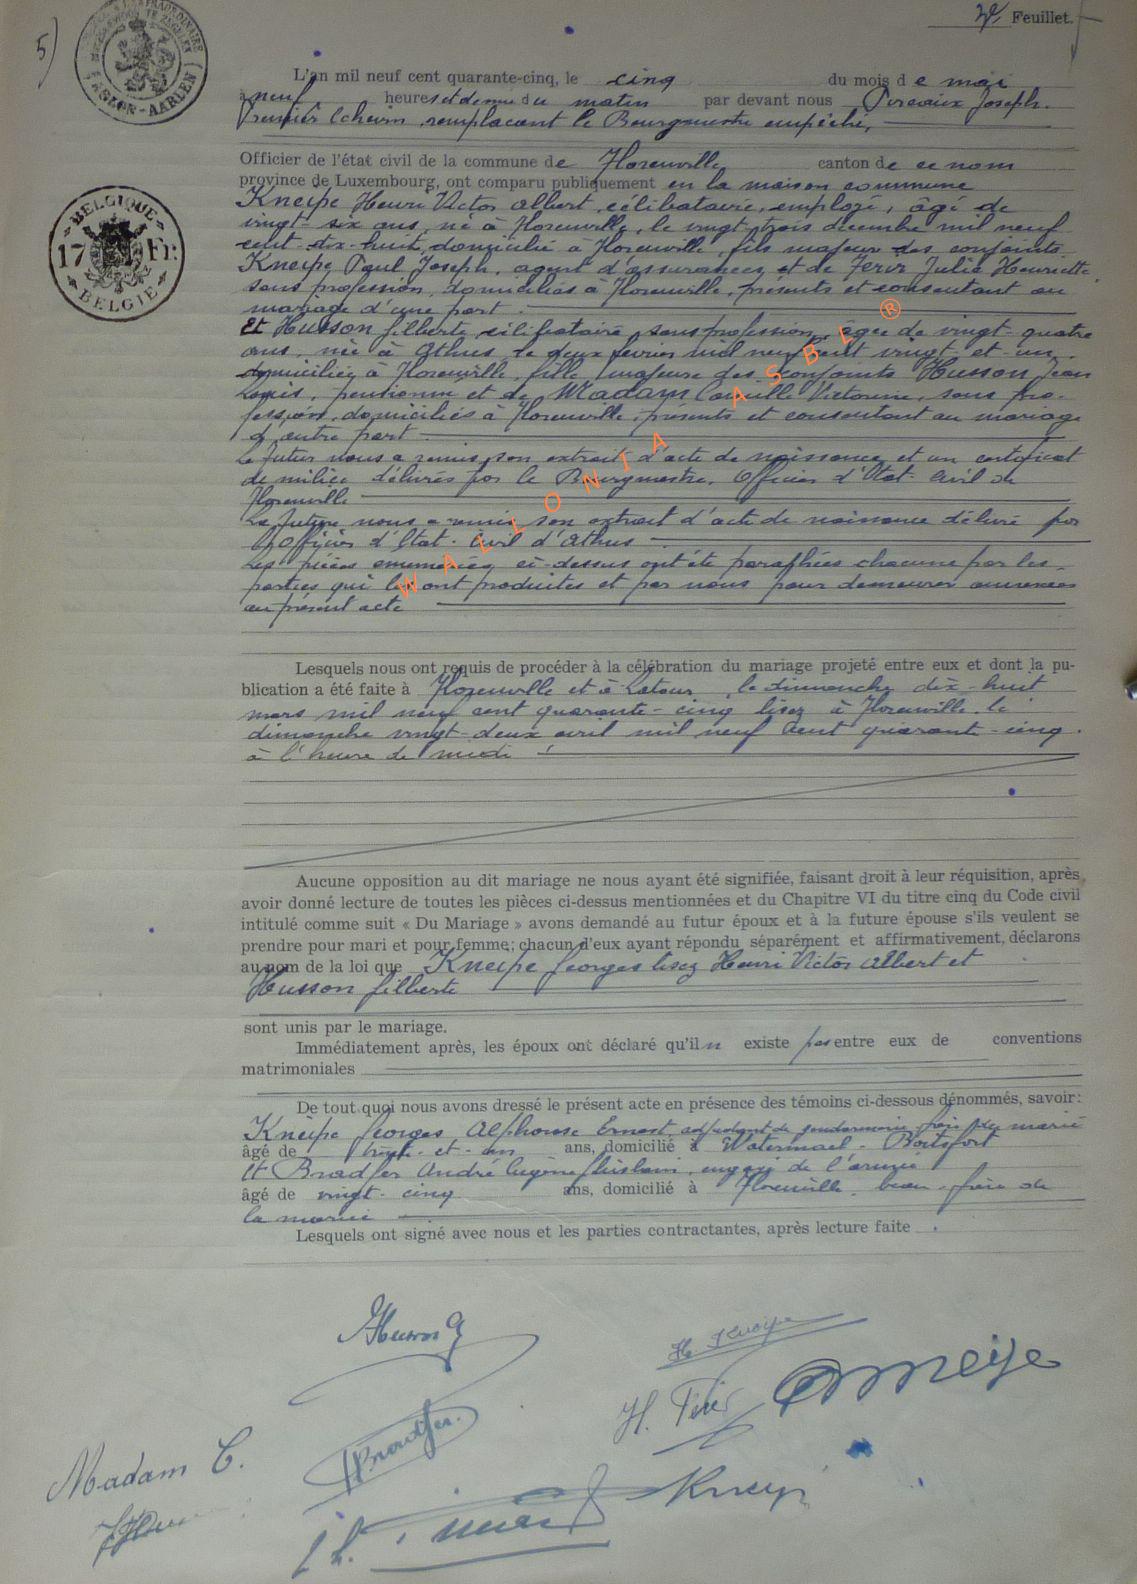 5)
2e Feuillet.
ARLON-AARLEN
L'an mil neuf cent quarante-cinq, le cinq du mois de mai
à neuf heures et demie du matin par devant nous Joseph.
Premier Echevin, remplaçant le Bourgmestre empêché,
Officier de l'état civil de la commune de Florenville canton de ce nom
BELGIQUE
17 Fr.
BELGIE
province de Luxembourg, ont comparu publiquement en la maison commune
Kneipe Henri Victor Albert, célibataire, employé, âgé de
vingt-six ans, né à Florenville, le vingt-trois décembre mil neuf
cent dix-huit, domicilié à Florenville, fils majeur des conjoints
Kneipe Paul Joseph, agent d'assurances et de Julie Henriette
sans profession, domiciliés à Florenville, présents et consentant au
mariage d'une part.
et Husson Gilberte, célibataire, sans profession, âgée de vingt-quatre
ans, née à Athus, le deux février mil neuf cent vingt et un,
domiciliée à Florenville, fille majeure des conjoints Husson Jean
Louis, pensionné et de Madam Camille Victorine, sans pro-
fession, domiciliés à Florenville, présents et consentant au mariage
d'autre part.
Le futur nous a remis son extrait d'acte de naissance et un certificat
de milice délivrés par le Bourgmestre, Officier d'Etat-Civil de
Florenville
La future nous a remis son extrait d'acte de naissance délivré par
l'Officier d'Etat-Civil d'Athus
Les pièces énumérées ci-dessus ont été paraphées chacune par les
parties qui les ont produites et par nous pour demeurer annexées
au présent acte
WALLONIA ASBL ®
Lesquels nous ont requis de procéder à la célébration du mariage projeté entre eux et dont la pu-
blication a été faite à Florenville et à Latour, le dimanche dix-huit
mars mil neuf cent quarante-cinq lisez à Florenville, le
dimanche vingt-deux avril mil neuf cent quarante-cinq.
à l'heure de midi
Aucune opposition au dit mariage ne nous ayant été signifiée, faisant droit à leur réquisition, après
avoir donné lecture de toutes les pièces ci-dessus mentionnées et du Chapitre VI du titre cinq du Code civil
intitulé comme suit « Du Mariage » avons demandé au futur époux et à la future épouse s'ils veulent se
prendre pour mari et pour femme; chacun d'eux ayant répondu séparément et affirmativement, déclarons
au nom de la loi que Kneipe Georges lisez Henri Victor Albert et
Husson Gilberte
sont unis par le mariage.
Immédiatement après, les époux ont déclaré qu'il n existe pas entre eux de conventions
matrimoniales
De tout quoi nous avons dressé le présent acte en présence des témoins ci-dessous dénommés, savoir:
Kneipe Georges Alphonse Ernest adjudant de gendarmerie frère du marié
âgé de trente-et-un ans, domicilié à Watermael-Boitsfort
et Bradfer André Eugène Ghislain, engagé de l'armée
âgé de vingt-cinq ans, domicilié à Florenville, beau-frère de
la mariée
Lesquels ont signé avec nous et les parties contractantes, après lecture faite.
Husson G
H. Kneipe
Bradfer.
Madam C.